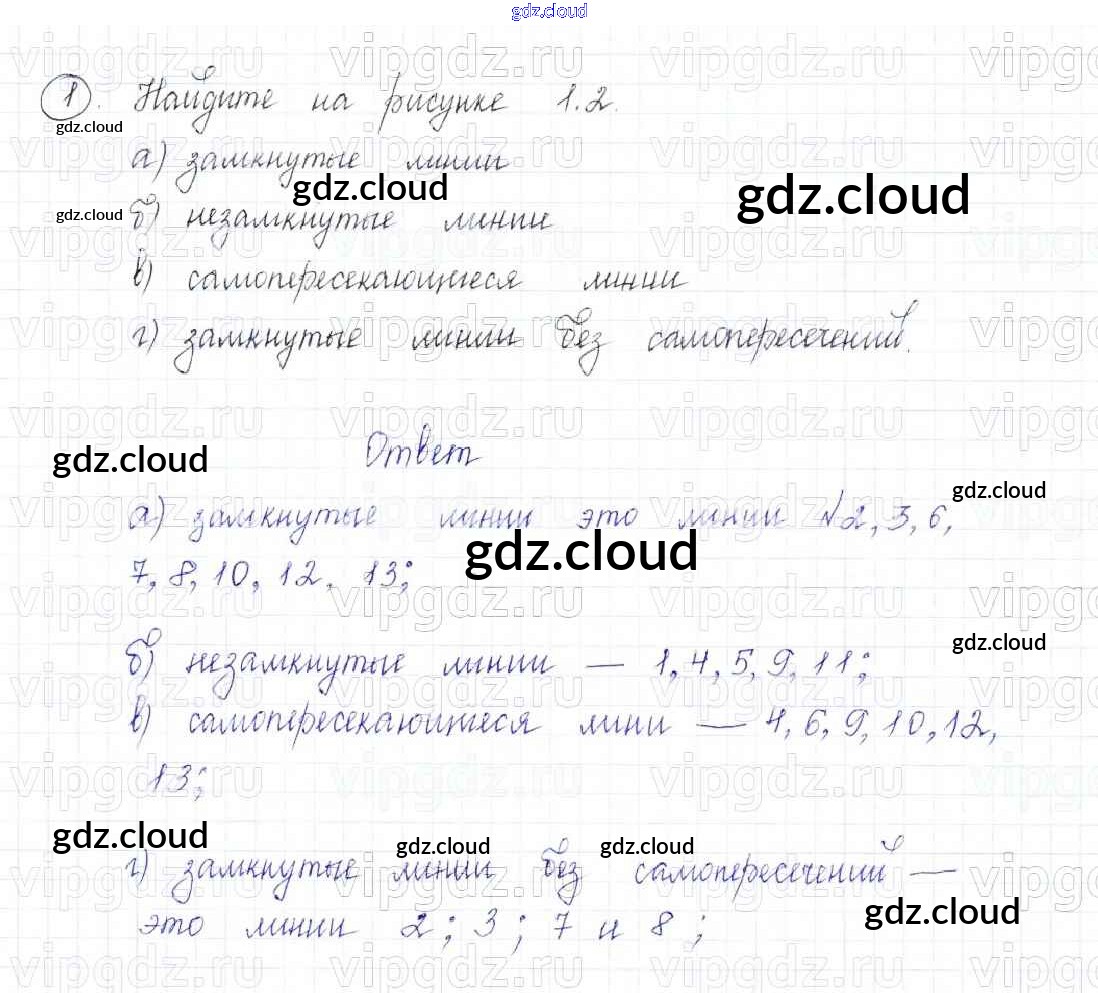 gdz.cloud
1. Найдите на рисунке 1.2.
gdz.cloud
а) замкнутые линии
gdz.cloud
gdz.cloud
gdz.cloud
б) незамкнутые линии
в) самопересекающиеся линии
г) замкнутые линии без самопересечений.
Ответ
gdz.cloud
gdz.cloud
а) замкнутые линии это линии №2, 3, 6,
gdz.cloud
7, 8, 10, 12, 13;
gdz.cloud
б) незамкнутые линии — 1, 4, 5, 9, 11;
в) самопересекающиеся лини — 4, 6, 9, 10, 12,
13;
gdz.cloud
gdz.cloud
gdz.cloud
г) замкнутые линии без самопересечений —
gdz.cloud
это линии 2; 3; 7 и 8;
vipgdz.ru